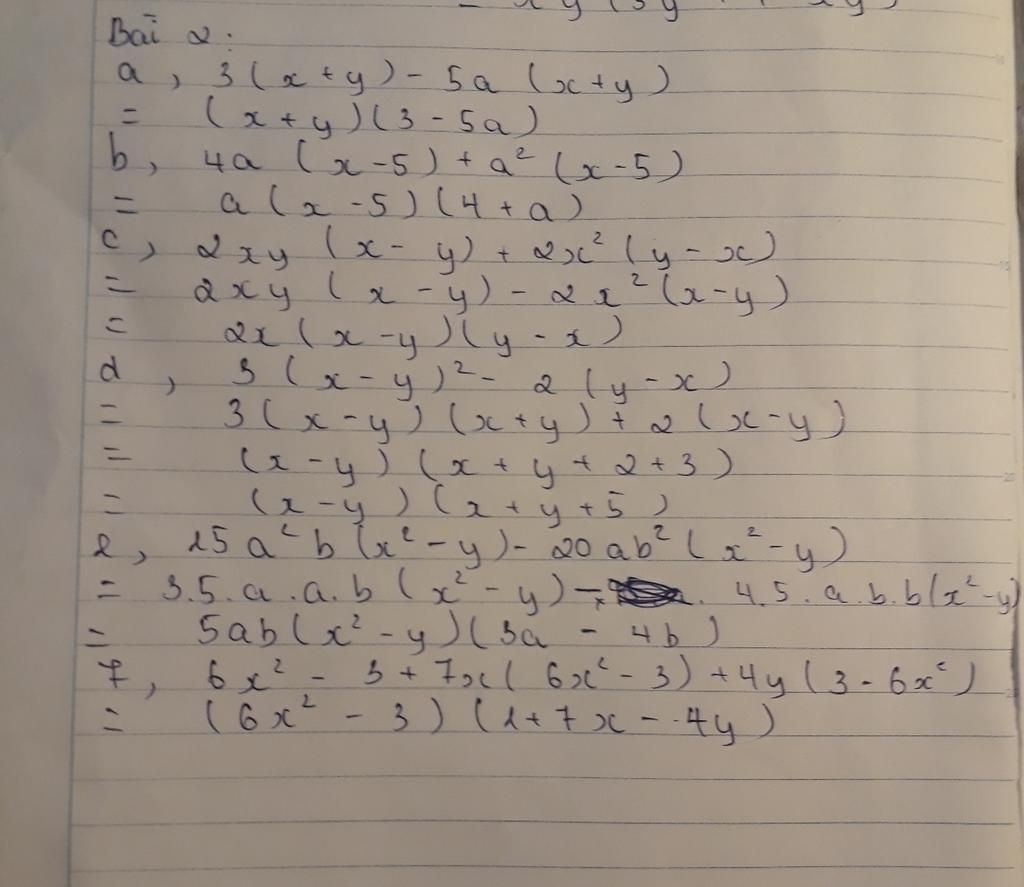 Bài 2:
a, 3(x+y) - 5a (x+y)
= (x+y)(3-5a)
b, 4a (x-5) + a² (x-5)
= a(x-5)(4+a)
c, 2xy (x-y) + 2x² (y-x)
= 2xy (x-y) - 2x² (x-y)
= 2x (x-y)(y-x)
d, 3 (x-y)² - 2 (y-x)
= 3(x-y) (x+y) + 2 (x-y)
= (x-y) (x+y+2+3)
= (x-y) (x+y+5)
e, 15a²b(x²-y) - 20ab² (x²-y)
= 3.5.a.a.b (x²-y) - 4.5.a.b.b(x²-y)
= 5ab(x²-y)(3a - 4b)
f, 6x² - 3 + 7x( 6x²-3) + 4y (3-6x²)
= (6x² - 3) (1+7x - 4y)